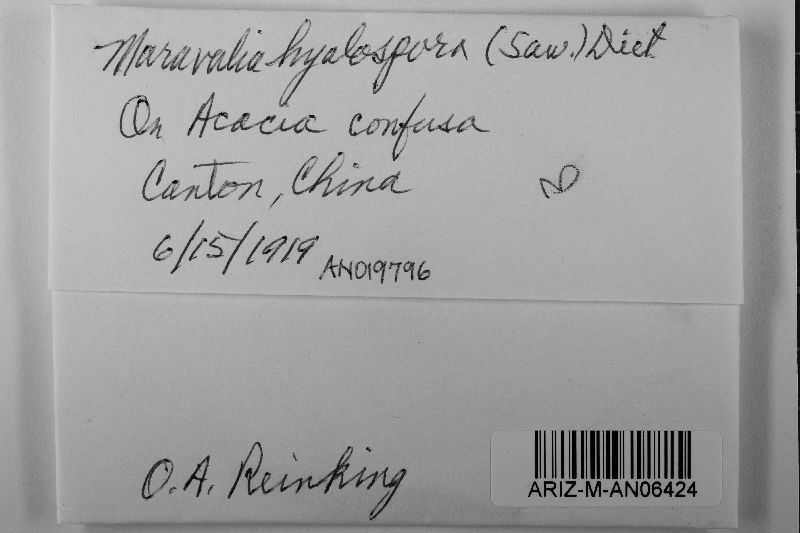 Maravalia hyalospora (Saw.) Diet
On Acacia confusa
Canton, China
6/15/1919
AN019796
O.A. Reinking
ARIZ-M-AN06424